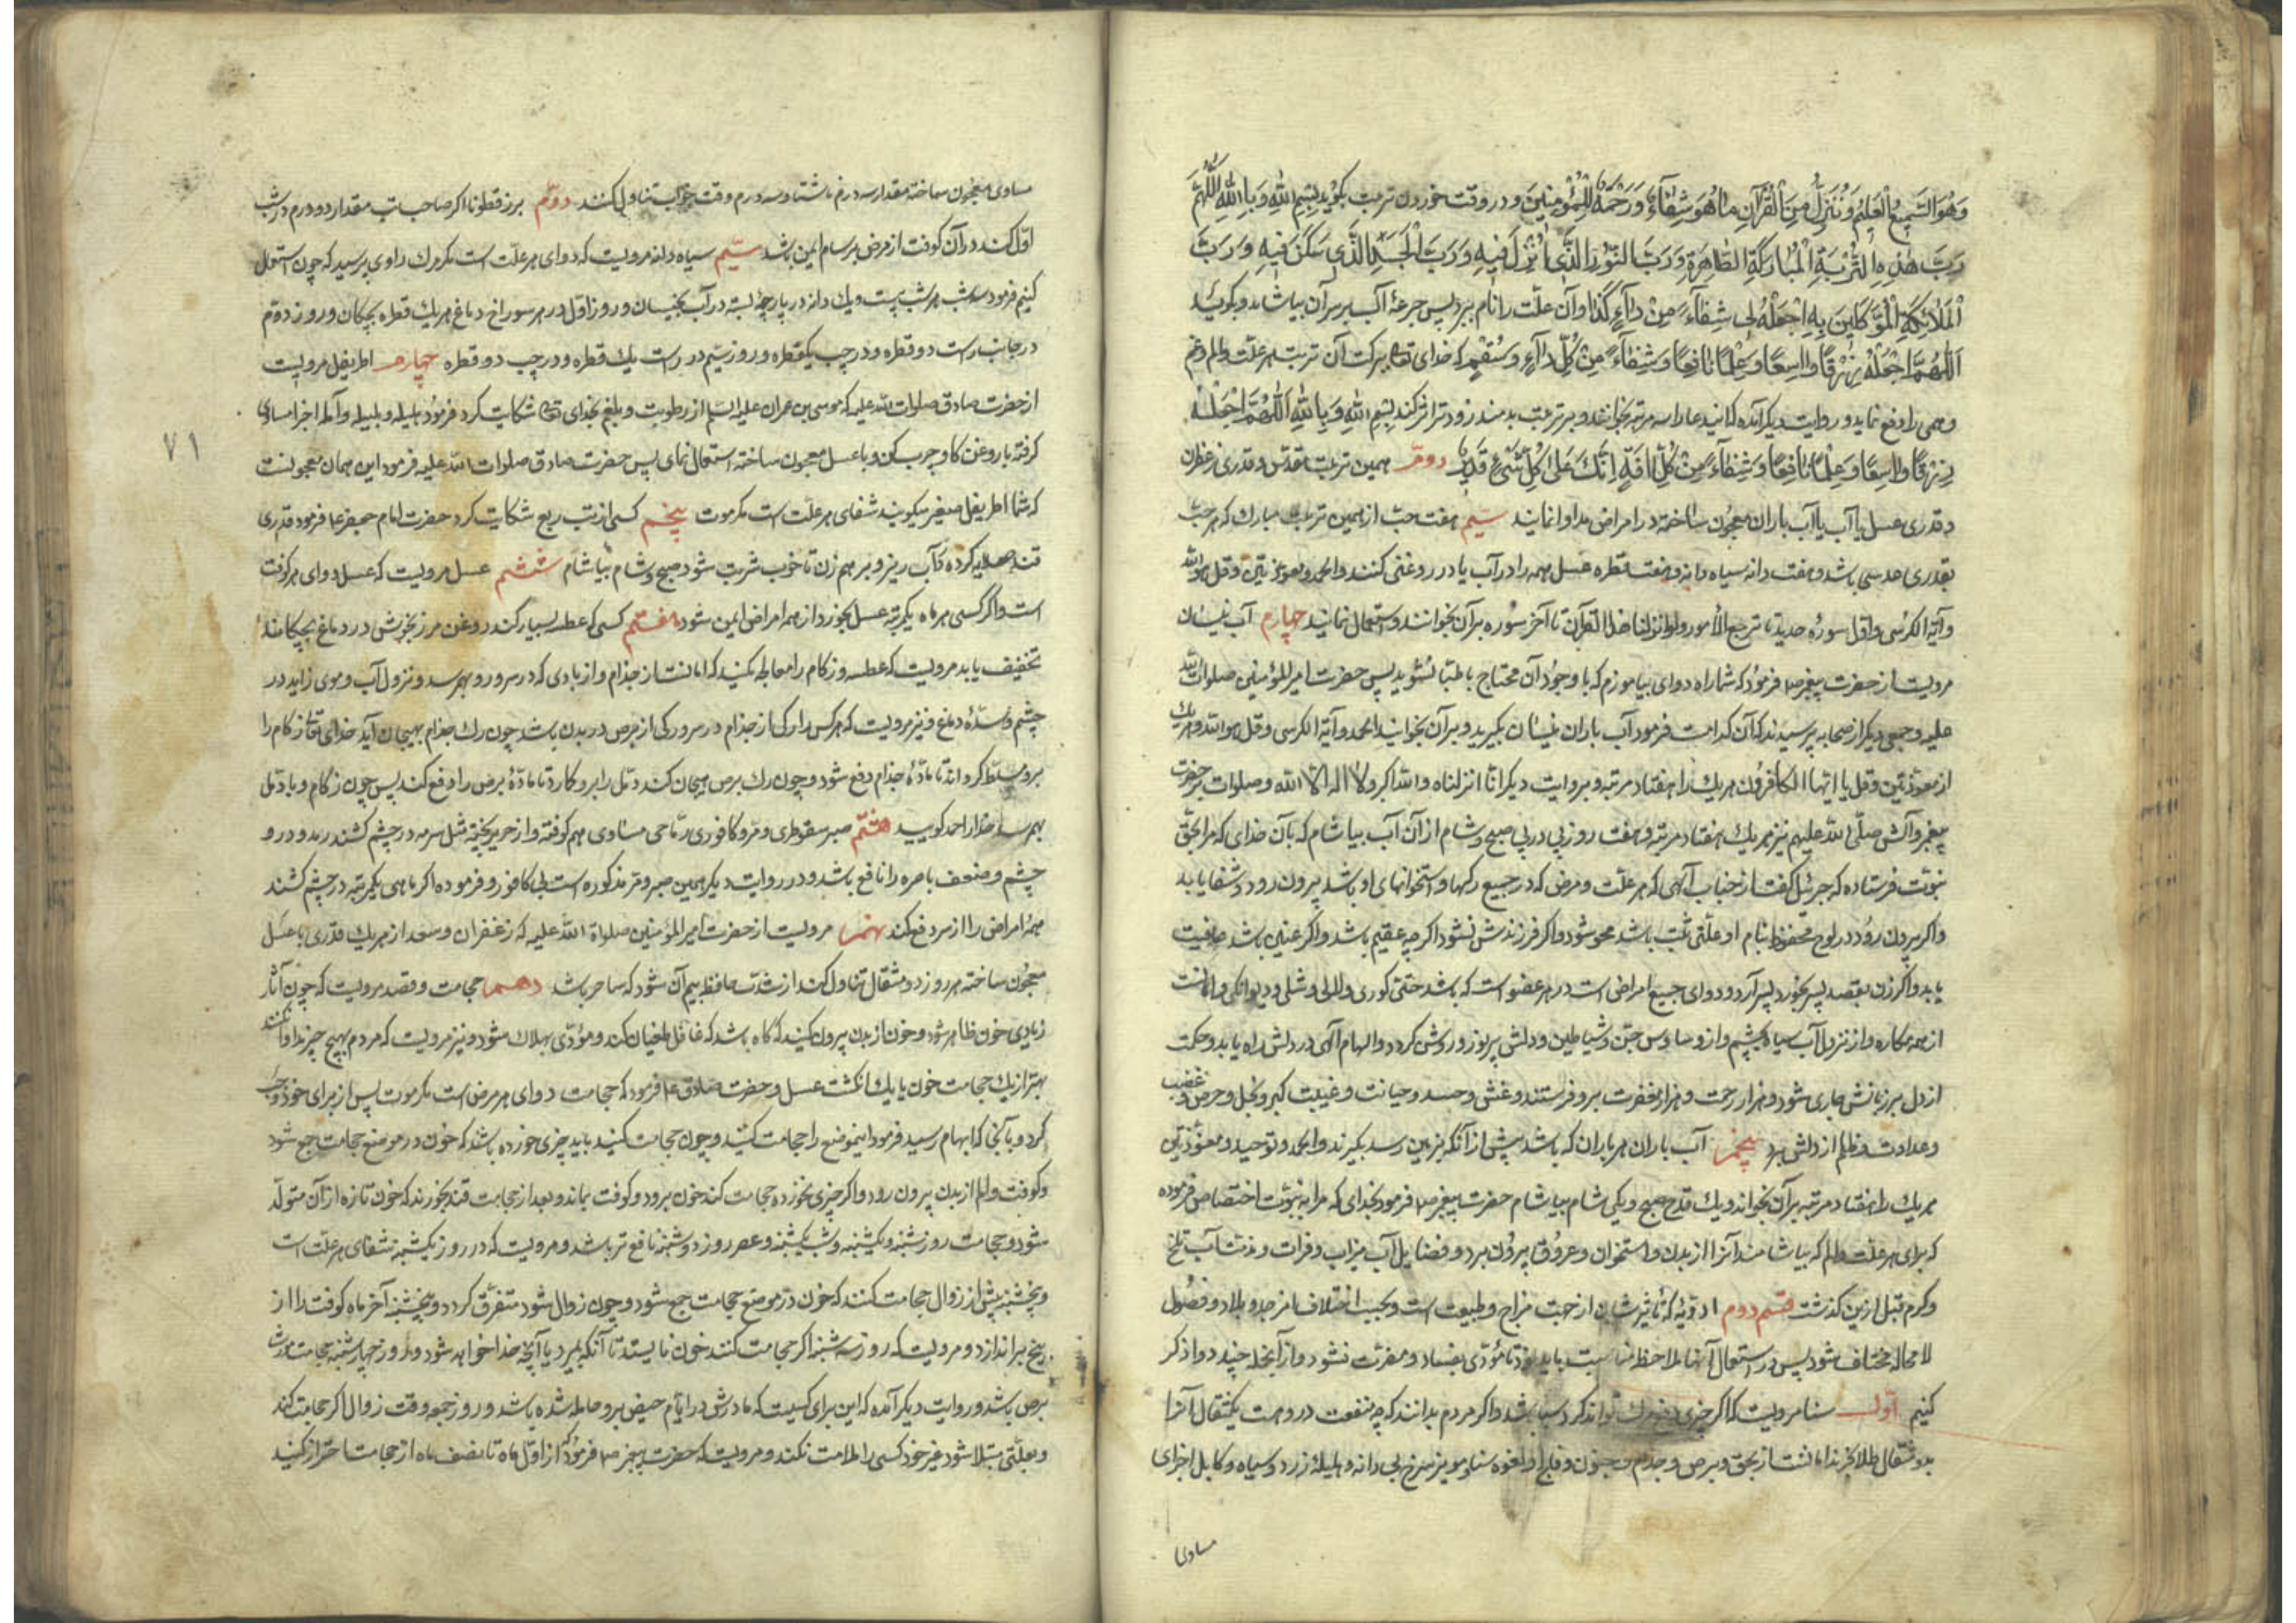 وَهُوَ السَّمِيعُ الْعَلِيمُ وَنُنَزِّلُ مِنَ الْقُرْآنِ مَا هُوَ شِفَآءٌ وَرَحْمَةٌ لِلْمُؤْمِنِينَ و در وقت خوردن تربت بگوید بِسْمِ اللهِ وَ بِاللهِ اللّٰهُمَّ
رَبَّ هٰذِهِ التُّرْبَةِ الْمُبَارَكَةِ الطَّاهِرَةِ وَ رَبَّ النُّورِ الَّذِي اُنْزِلَ فِيهِ وَ رَبَّ الْجَسَدِ الَّذِي سَكَنَ فِيهِ وَ رَبَّ
الْمَلَائِكَةِ الْمُوَكَّلِينَ بِهِ اِجْعَلْهُ لِي شِفَآءً مِنْ دَآءِ كَذَا و آن علّت را نام ببرد پس جرعهٔ آب بر سر آن بیاشامد و بگوید
اَللّٰهُمَّ اجْعَلْهُ رِزْقًا وَاسِعًا وَ عِلْمًا نَافِعًا وَ شِفَآءً مِنْ كُلِّ دَآءٍ وَ سُقْمٍ که خدای تعا ببرکت آن تربت هر علّت و الم و غم
و همی را دفع نماید و روایت دیگر آمده که ایند عا را سه مرتبه بخوانند و بر تربت بدمند زودتر اثر کند بِسْمِ اللهِ وَ بِاللهِ اَللّٰهُمَّ اجْعَلْهُ
رِزْقًا وَاسِعًا وَ عِلْمًا نَافِعًا وَ شِفَآءً مِنْ كُلِّ آفَةٍ اِنَّكَ عَلَى كُلِّ شَيْءٍ قَدِيرٌ دوّم همین تربت مقدّس و قدری زعفران
و قدری عسل یا آب یا آب باران معجون ساخته در امراض مداوا نمایند سیّم هفت حبّ از همین تربت مبارک که هر حبّ
بقدر عدسی باشد و هفت دانه سیاه دانه و هفت قطره عسل همه را در آب یا در روغنی کنند و الحمد و معوّذتین و قل هو الله
و آیة الکرسی و اوّل سورهٔ حدید تا ترجع الأمور و لو انزلنا هذا القرآن تا آخر سوره بر آن بخوانند و استعمال نمایند چهارم آب نیسان
مرویست از حضرت پیغمبر ص فرمود که شما را دوای بیاموزم که با وجود آن محتاج باطبّا نشوید پس حضرت امیر المؤمنین صلوات الله
علیه و جمعی دیگر از صحابه پرسیدند که آن کدامست فرمود آب باران نیسان بگیرید و بر آن بخوانید الحمد و آیة الکرسی و قل هو الله و هر یک
از معوّذتین و قل یا ایّها الکافرون هر یک را هفتاد مرتبه و بروایت دیگر انّا انزلناه و الله اکبر و لا اله الّا الله و صلوات بر حضرت
پیغمبر و آلش صلّی الله علیهم نیز هر یک هفتاد مرتبه و هفت روز پی در پی صبح و شام از آن آب بیاشام که بآن خدای که مرا بحقّ
نبوّت فرستاده که جبرئیل گفت از جناب آلهی که هر علّت و مرض که در جمیع رگها و استخوانهای او باشد بیرون رود و شفا یابد
و اگر بیرون رود در لوح محفوظ بنام او علّتی ثبت باشد محو شود و اگر فرزندش نشود اگر چه عقیم باشد و اگر عنین باشد عافیت
یابد و اگر زن بقصد پسر بخورد پسر آرد و دوای جمیع امراض است در هر عضو است که باشد حتّی کوری و لالی و شلی و دیوانگی و امانست
از همه مکاره و از نزول آب سیاه بچشم و از وساوس جن و شیاطین و دلش پر نور و روشن گردد و الهام آلهی در دلش راه یابد و حکمت
از دل بر زبانش جاری شود و هزار رحمت و هزار مغفرت برو فرستند و غش و حسد و خیانت و غیبت کبر و بخل و حرص و غضب
و عداوت و ظلم از دلش برد پنجم آب باران هر باران که باشد پیش از آنکه بزمین رسد بگیرند و الحمد و توحید و معوّذتین
هر یک را هفتاد مرتبه بر آن بخواند و یک قدح صبح و یکی شام بیاشام حضرت پیغمبر ص فرمود بخدای که مرا به نبوّت اختصاص فرموده
که برای هر علّت و الم که بیاشامند آنرا از بدن و استخوان و عروق بیرون برد و فضایل آب میزاب و فرات و مذمّت آب تلخ
و گرم قبل ازین گذشت قسم دوم ادویهٔ که تأثیر شان از جهت مزاج و طبیعت است و بحسب اختلاف امزجه و بلاد و فصول
لا محاله مختلف شود پس در استعمال آنها ملاحظه باید نمود تا مؤدّی بفساد و مضرّت نشود و از آنجمله چند دوا ذکر
کنیم اوّل سنا مرویست که اگر چیزی دفع مرک تواند کرد سنا باشد و اگر مردم بدانند که چه منفعت دروست یکمثقال آنرا
بدو مثقال طلا بخرند امانست از بهق و برص و جذام و جنون و فالج و لقوه سنا و مویز سرخ بی دانه و هلیلهٔ زرد و سیاه و کابلی اجزای
مساوی
مساوی معجون ساخته مقدار سه درم ناشتا و سه درم وقت خواب تناول کنند دوّم بزر قطونا اگر صاحب تب مقدار دو درم در شب
اوّل کند در آن کوفت از مرض برسام ایمن باشد سیّم سیاه دانه مرویست که دوای هر علّت است مگر مرک راوی پرسید که چون استعمال
کنیم فرمود سه شب هر شب بیست و یک دانه در پارچهٔ بسته در آب بخیسان و روز اوّل در هر سوراخ دماغ هر یک قطره بچکان و روز دوّم
در جانب راست دو قطره و در چپ یکقطره و روز سیّم در راست یک قطره و در چپ دو قطره چهارم اطریفل مرویست
از حضرت صادق صلوات الله علیه که موسی بن عمران علیه السلام از رطوبت و بلغم بخدای تعا شکایت کرد فرمود هلیله و بلیله و آمله اجزا مساوی
گرفته با روغن گاو چرب کن و با عسل معجون ساخته استعمال نمای پس حضرت صادق صلوات الله علیه فرمود این همان معجونست
که شما اطریفل صغیر میگویند شفای هر علّت است مگر موت پنجم کسی از تب ربع شکایت کرد حضرت امام جعفر ع فرمود قدری
قند صلایه کرده در آب ریز و بر هم زن تا خوب شربت شود صبح و شام بیاشام ششم عسل مرویست که عسل دوای هر کوفت
است و اگر کسی هر ماه یکمرتبه عسل بخورد از همه امراض ایمن شود هفتم کسی که عطسه بسیار کند روغن مرزنجوش در دماغ بچکاند
تخفیف یابد مرویست که عطسه و زکام را معالجه مکنید که امانست از جذام و از بادی که در سر و رو بهم رسد و نزول آب و موی زاید در
چشم و سدّهٔ دماغ و نیز مرویست که هر کس را رکی از جذام در سر و رکی از برص در بدن باشد چون رک جذام بهیجان آید خدای تعا زکام را
برو مسلّط گرداند تا مادّهٔ جذام دفع شود و چون رک برص هیجان کند دمّل را برو گمارد تا مادّهٔ برص را دفع کند پس چون زکام و یا دمّل
بهم رسد خدا را حمد گویید هشتم صبر سقوطری و مرّ و کافور ریاحی مساوی هم کوفته و از حریر بیخته مثل سرمه در چشم کشند رمد و درد
چشم و ضعف باصره را نافع باشد و در روایت دیگر همین صبر و مر مذکوره است بی کافور و فرموده اگر ماهی یکمرتبه در چشم کشند
همهٔ امراض را از سر دفع کند نهم مرویست از حضرت امیر المؤمنین صلوات الله علیه که زعفران و سعد از هر یک قدری با عسل
معجون ساخته هر روز دو مثقال تناول کند از شدّت حافظه بیم آن شود که ساحر باشد دهم حجامت و فصد مرویست که چون آثار
زیادی خون ظاهر شود خون از بدن بیرون کنید که گاه باشد که غافل طغیان کند و مؤدّی بهلاک شود و نیز مرویست که مردم بهیچ چیز مداوا نکنند
بهتر از یک حجامت خون یا یک انگشت عسل و حضرت صادق ع فرمود که حجامت دوای هر مرض است مگر موت پس از برای خود
کرد و بآنجا که ابهام رسید فرمود اینموضع را حجامت کنید و چون حجامت کنید باید چیزی خورده باشد که خون در موضع حجامت جمع شود
و کوفت و الم از بدن بیرون رود و اگر چیزی نخورده حجامت کند خون برود و کوفت بماند و بعد از حجامت قند بخورند که خون تازه از آن متولّد
شود و حجامت روز شنبه و یکشنبه و شب یکشنبه و عصر روز دوشنبه نافع تر باشد و مرویست که در روز یکشنبه شفای هر علّت است
و پنجشنبه پیش از زوال حجامت کنند که خون در موضع حجامت جمع شود و چون زوال شود متفرّق گردد و پنجشنبه آخر ماه کوفت را از
بیخ براندازد و مرویست که روز سه شنبه اگر حجامت کنند خون نایستد تا آنکه بمیرد یا آنچه خدا خواهد شود و روز چهارشنبه حجامت مورث
برص باشد و روایت دیگر آمده که این برای کسیست که مادرش در ایّام حیض برو حامله شده باشد و روز جمعه وقت زوال اگر حجامت کند
و بعلّتی مبتلا شود غیر خود کسی را ملامت نکند و مرویست که حضرت پیغمبر ص فرمود که از اوّل ماه تا نصف ماه از حجامت احتراز کنید
۷۱